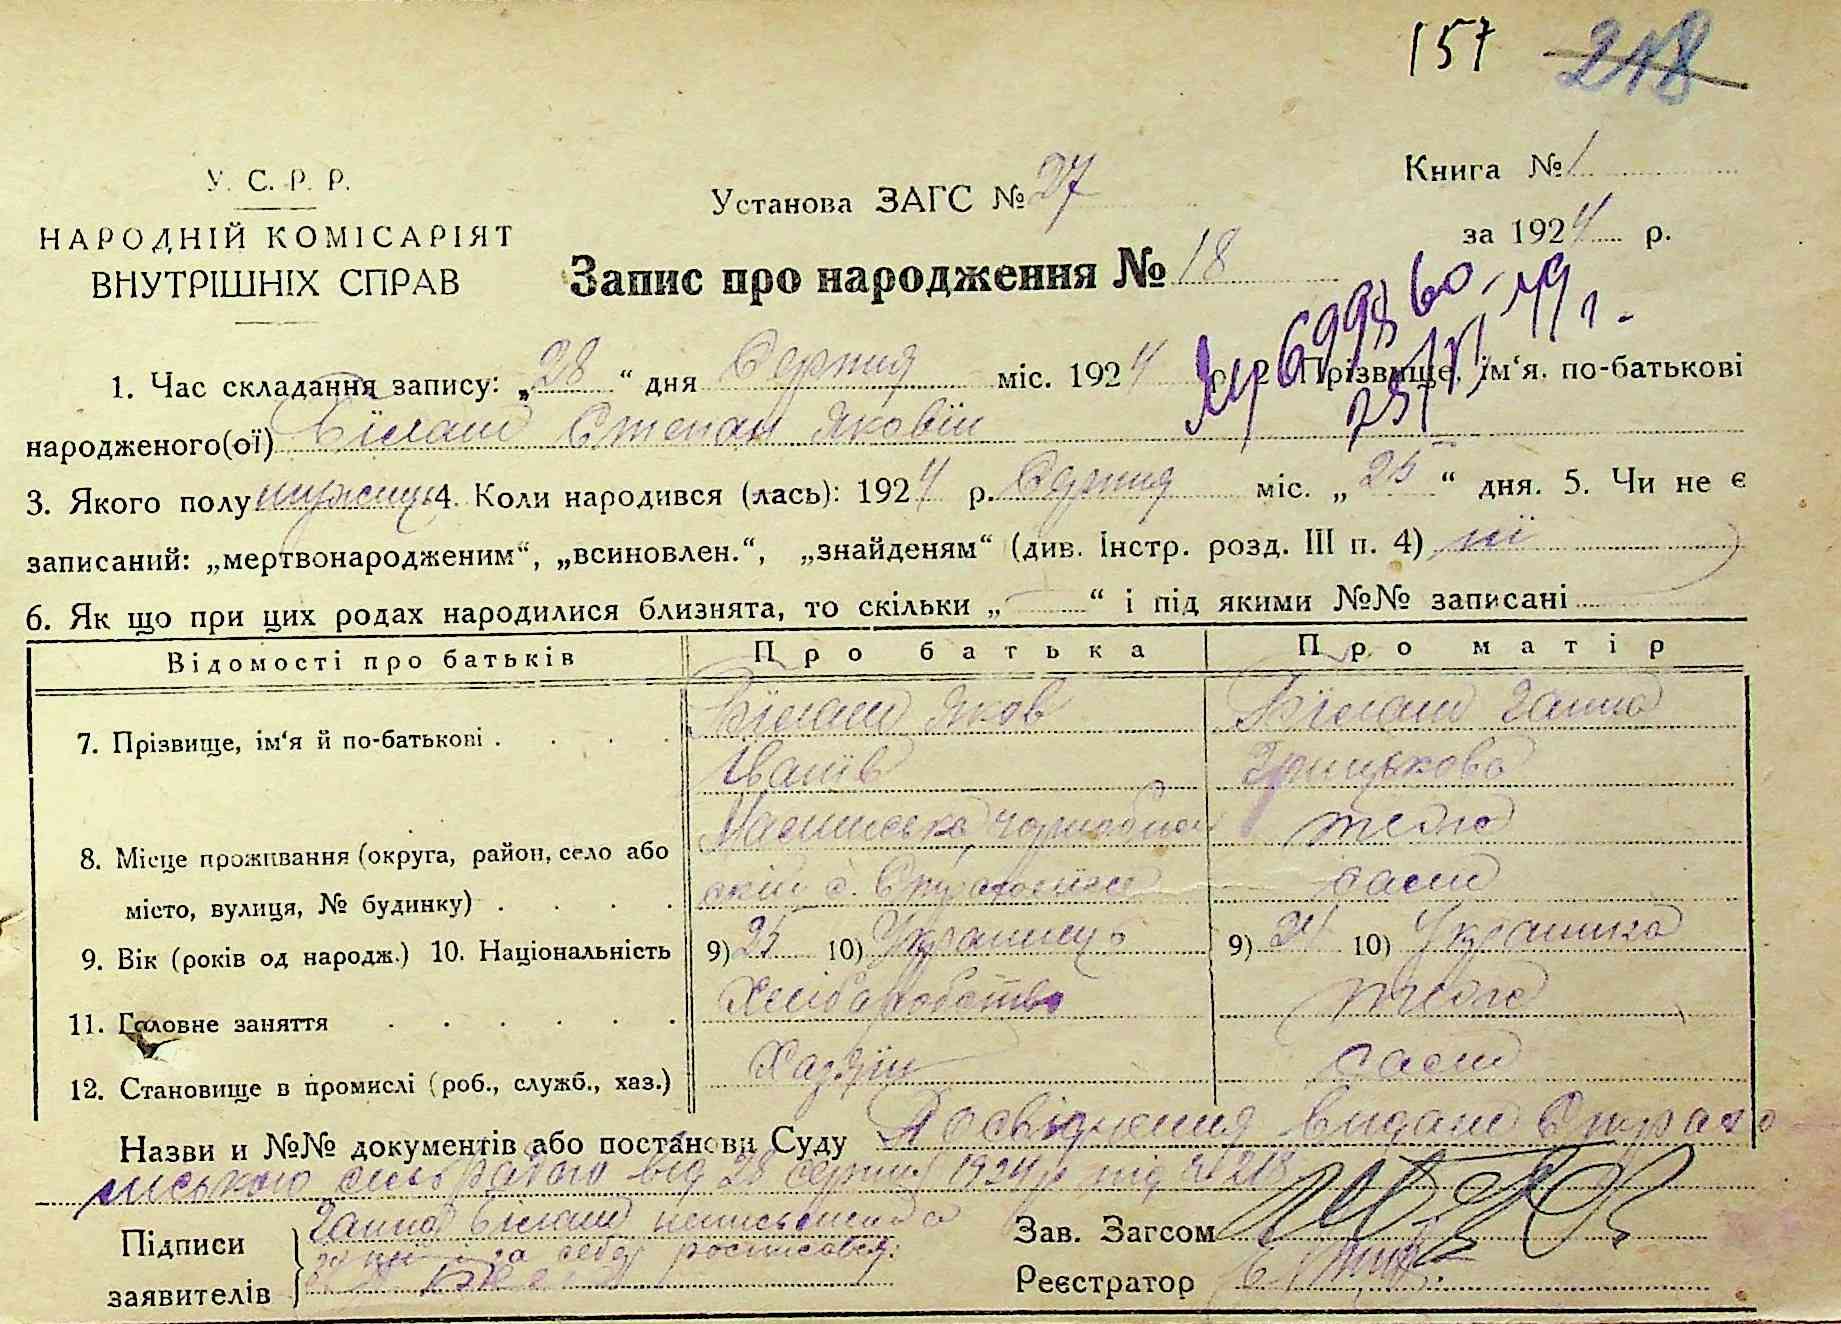 157 218
У. С. Р. Р.
НАРОДНІЙ КОМІСАРІЯТ
ВНУТРІШНІХ СПРАВ
Установа ЗАГС № 27
Книга № 1
за 1924 р.
Запис про народження № 18
1. Час складання запису: „28“ дня Серпня міс. 1924 р. 2. Прізвище, ім‘я, по-батькові
народженого(ої) Білаш Степан Яковів
3. Якого полу мужськ 4. Коли народився (лась): 1924 р. Серпня міс. „25“ дня. 5. Чи не є
записаний: „мертвонародженим“, „всиновлен.“, „знайденям“ (див. Інстр. розд. III п. 4) ні
6. Як що при цих родах народилися близнята, то скільки „ — “ і під якими №№ записані
Відомості про батьків Про батька Про матір
7. Прізвище, ім‘я й по-батькові . . . . Білаш Яков Білаш Ганна
Іванів Грицькова
8. Місце проживання (округа, район, село або теж
місто, вулиця, № будинку) . . . . с. саме
9. Вік (років од народж.) 10. Національність 9) 25 10) Українець 9) 24 10) Українка
11. Головне заняття . . . . . . Хліборобство теж
12. Становище в промислі (роб., служб., хаз.) Хазяїн саме
Назви и №№ документів або постанови Суду Посвідчення видане
сільрадою від 28 серпня 1924 р під № 218
Підписи заявителів Ганна Білаш неписьменна
за себе росписався
Зав. Загсом
Реєстратор